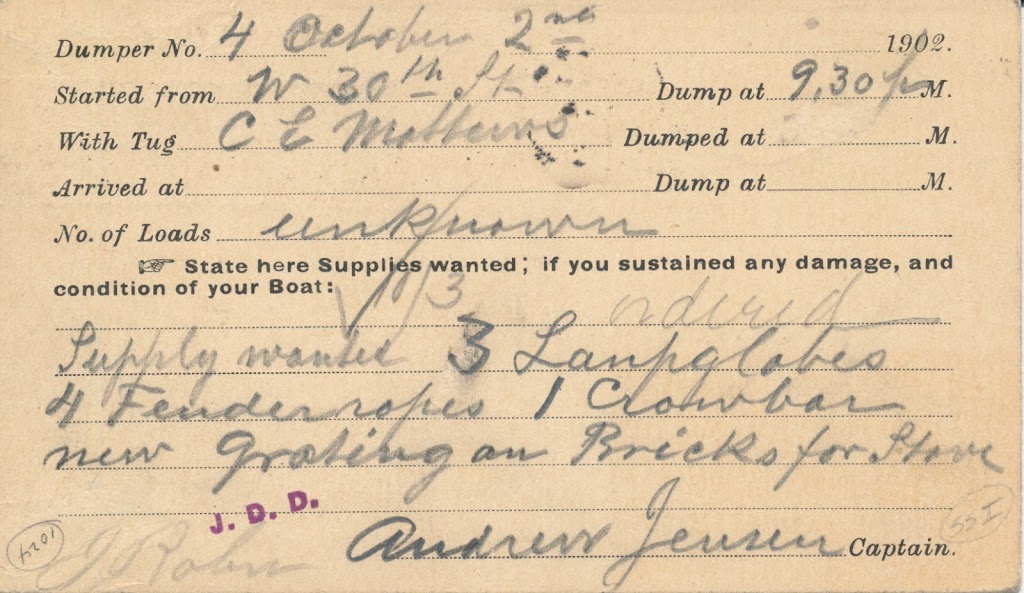 Dumper No. 4 October 2nd 1902.
Started from W 30th St Dump at 9,30 p M.
With Tug C E Mattews Dumped at M.
Arrived at Dump at M.
No. of Loads unknown
☞ State here Supplies wanted; if you sustained any damage, and
condition of your Boat:
10/3 ordered
Supply wanted 3 Lanpglobes
4 Fender ropes 1 Crowbar
new grating an Bricks for Stove
J. D. D.
1024
Andrew Jensen Captain.